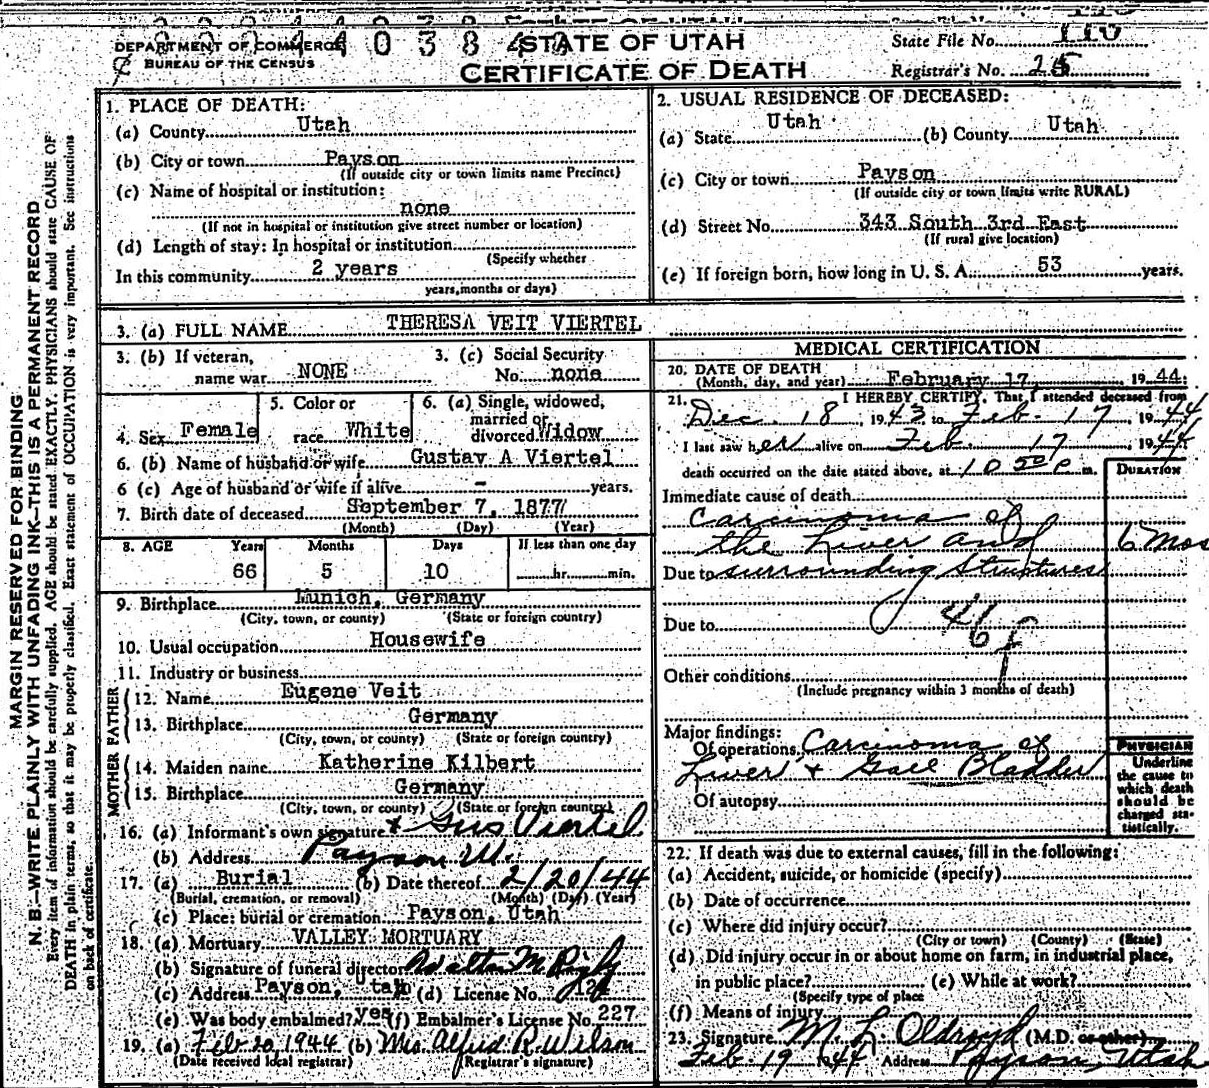 DEPARTMENT OF COMMERCE
BUREAU OF THE CENSUS
STATE OF UTAH
CERTIFICATE OF DEATH
State File No. 110
Registrar's No. 25
MARGIN RESERVED FOR BINDING
N. B.—WRITE PLAINLY WITH UNFADING INK—THIS IS A PERMANENT RECORD
Every item of information should be carefully supplied. AGE should be stated EXACTLY. PHYSICIANS should state CAUSE OF
DEATH in plain terms, so that it may be properly classified. Exact statement of OCCUPATION is very important. See instructions
on back of certificate.
1. PLACE OF DEATH:
(a) County Utah
(b) City or town Payson
(If outside city or town limits name Precinct)
(c) Name of hospital or institution:
none
(If not in hospital or institution give street number or location)
(d) Length of stay: In hospital or institution
(Specify whether
In this community 2 years
years, months or days)
2. USUAL RESIDENCE OF DECEASED:
(a) State Utah (b) County Utah
(c) City or town Payson
(If outside city or town limits write RURAL)
(d) Street No. 343 South 3rd East
(If rural give location)
(e) If foreign born, how long in U. S. A. 53 years.
3. (a) FULL NAME THERESA VEIT VIERTEL
3. (b) If veteran, name war NONE
3. (c) Social Security No. none
4. Sex Female
5. Color or race White
6. (a) Single, widowed, married or divorced Widow
6. (b) Name of husband or wife Gustav A Viertel
6 (c) Age of husband or wife if alive - years.
7. Birth date of deceased September 7, 1877
(Month) (Day) (Year)
8. AGE Years Months Days If less than one day
66 5 10 hr. min.
9. Birthplace Munich, Germany
(City, town, or county) (State or foreign country)
10. Usual occupation Housewife
11. Industry or business
FATHER
12. Name Eugene Veit
13. Birthplace Germany
(City, town, or county) (State or foreign country)
MOTHER
14. Maiden name Katherine Kilbert
15. Birthplace Germany
(City, town, or county) (State or foreign country)
16. (a) Informant's own signature x Gus Viertel
(b) Address Payson U.
17. (a) Burial (b) Date thereof 2/20/44
(Burial, cremation, or removal) (Month) (Day) (Year)
(c) Place: burial or cremation Payson, Utah
18. (a) Mortuary VALLEY MORTUARY
(b) Signature of funeral director Walter M Rigby
(c) Address Payson, Utah (d) License No.
(e) Was body embalmed? yes (f) Embalmer's License No. 227
19. (a) Feb 20, 1944 (b) Mrs. Alfred R. Wilson
(Date received local registrar) (Registrar's signature)
MEDICAL CERTIFICATION
20. DATE OF DEATH
(Month, day, and year) February 17, 1944
21. I HEREBY CERTIFY, That I attended deceased from
Dec. 18, 1943 to Feb. 17, 1944
I last saw her alive on Feb. 17 1944
death occurred on the date stated above, at 10 50 P m.
DURATION
Immediate cause of death
Carcinoma of
the Liver and 6 Mos
Due to surrounding Structures
Due to 46 f
Other conditions
(Include pregnancy within 3 months of death)
Major findings:
Of operations Carcinoma of
Liver + Gall Bladder
Of autopsy
PHYSICIAN
Underline
the cause to
which death
should be
charged sta-
tistically.
22. If death was due to external causes, fill in the following:
(a) Accident, suicide, or homicide (specify)
(b) Date of occurrence
(c) Where did injury occur?
(City or town) (County) (State)
(d) Did injury occur in or about home on farm, in industrial place,
in public place? (e) While at work?
(Specify type of place
(f) Means of injury
23. Signature M. L. Oldroyd (M.D. or other)
Feb. 19 1944 Address Payson, Utah